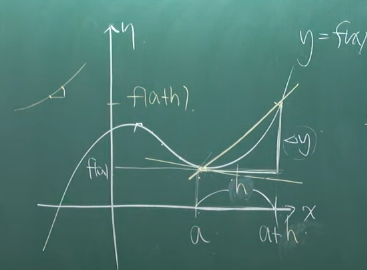 y
y = f(x)
f(a+h)
Δy
f(a)
h
x
a
a+h